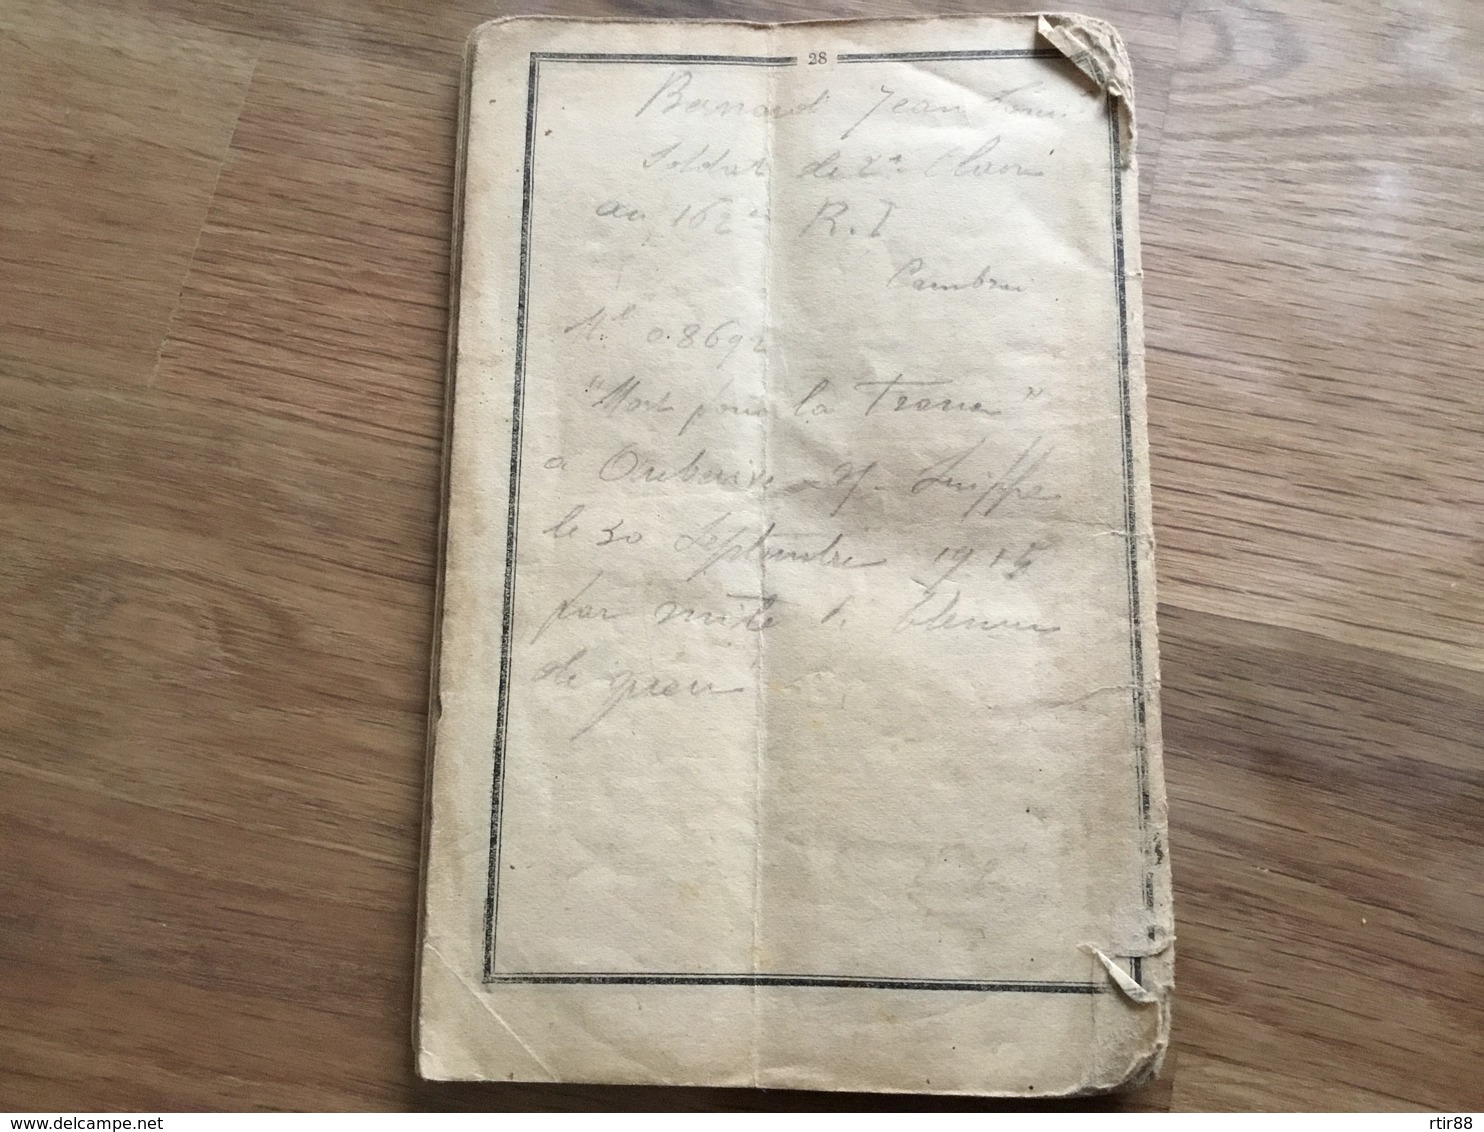 28
Jean Louis
Soldat de 2e Classe
au 162e R.I
Ml 0.8692
"Mort pour la France"
a Auberive-s/-Suippe
le 30 Septembre 1915
par suite de blessures
de guerre
delcampe.net
rtir88